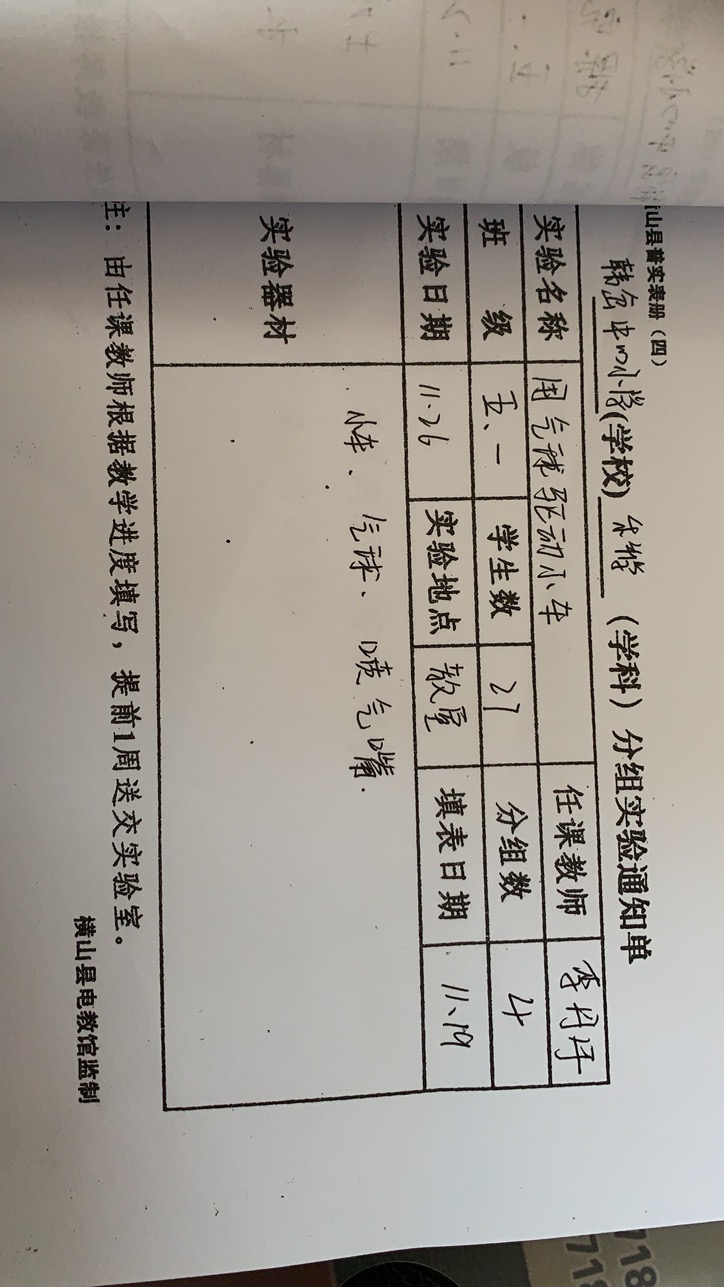 山县普实表册（四）
中心小学(学校) 科学 （学科）分组实验通知单
实验名称 用气球驱动小车 任课教师 李
班 级 五、一 学生数 27 分组数 4
实验日期 11.26 实验地点 教室 填表日期 11.19
实验器材 小车、气球、喷气嘴.
注：由任课教师根据教学进度填写，提前1周送交实验室。
横山县电教馆监制
718
718